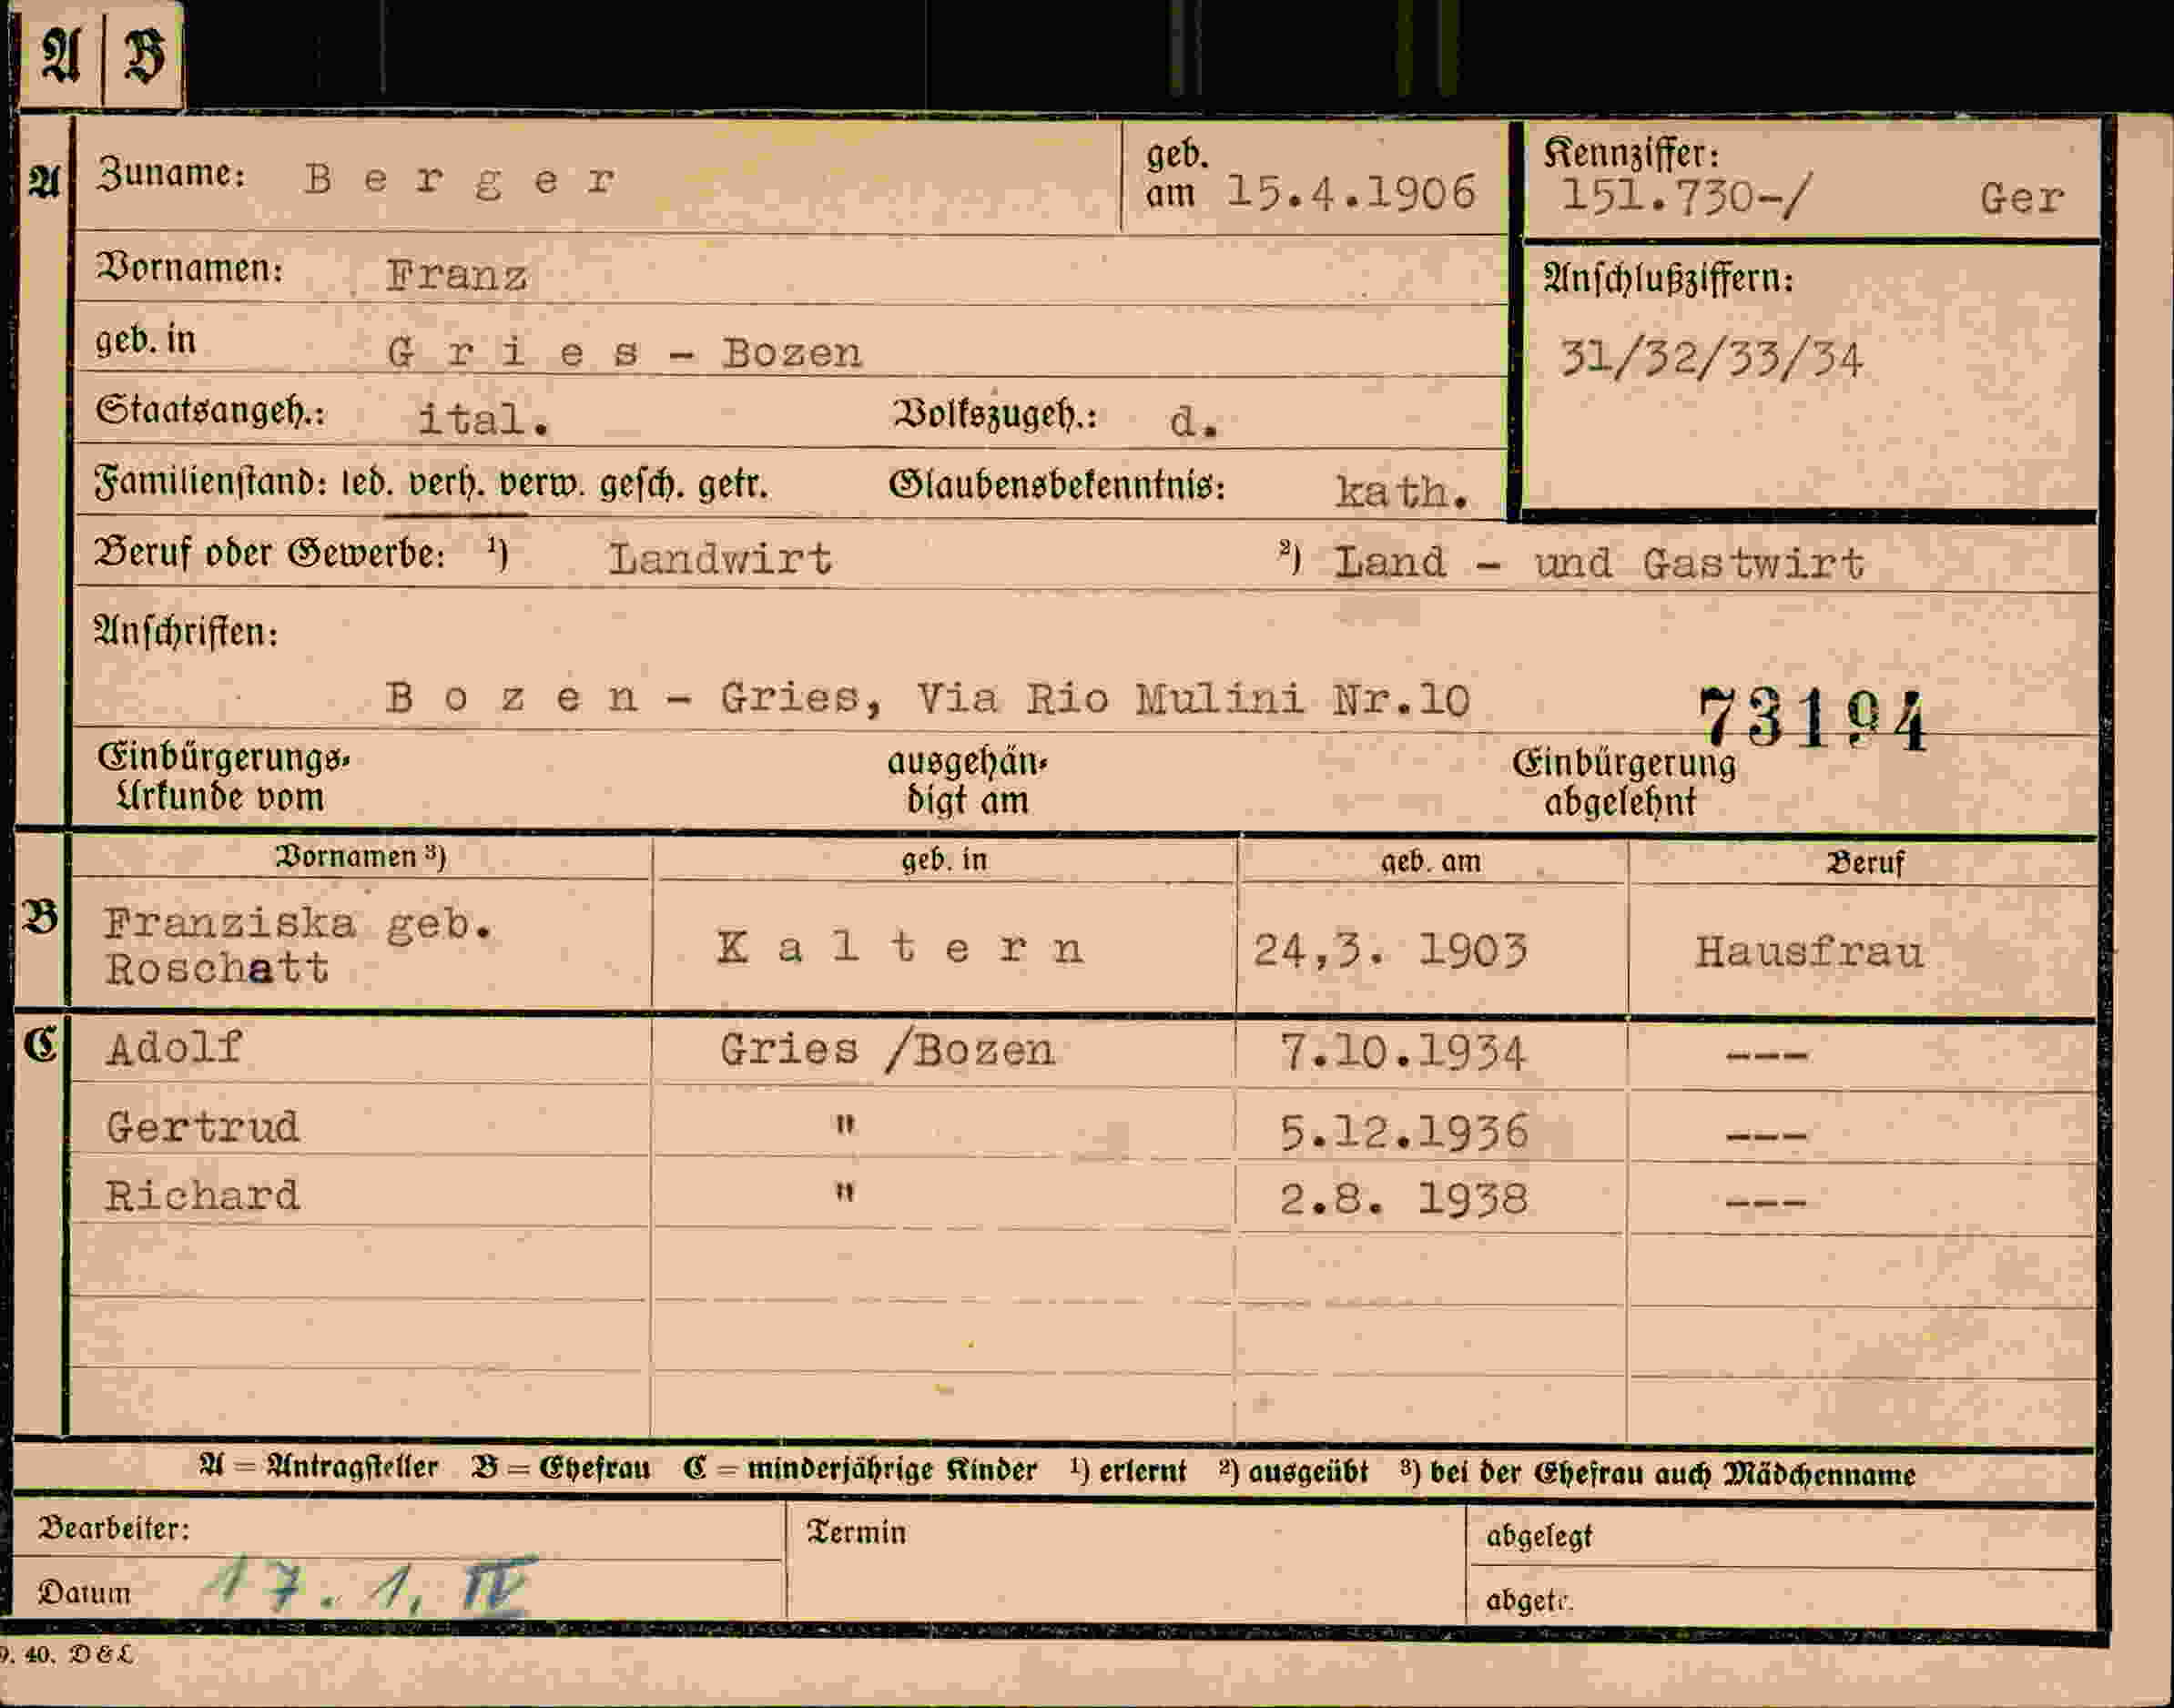 A B
A Zuname: Berger geb. am 15.4.1906 Kennziffer: 151.730-/ Ger
Vornamen: Franz Anschlußziffern:
geb. in Gries - Bozen 31/32/33/34
Staatsangeh.: ital. Volkszugeh.: d.
Familienstand: led. verh. verw. gesch. getr. Glaubensbekenntnis: kath.
Beruf oder Gewerbe: ¹) Landwirt ²) Land - und Gastwirt
Anschriften:
Bozen - Gries, Via Rio Mulini Nr.10 73194
Einbürgerungs- ausgehän- Einbürgerung
Urkunde vom digt am abgelehnt
Vornamen ³) geb. in geb. am Beruf
B Franziska geb. Roschatt Kaltern 24,3. 1903 Hausfrau
C Adolf Gries /Bozen 7.10.1934 ---
Gertrud " 5.12.1936 ---
Richard " 2.8. 1938 ---
A = Antragsteller B = Ehefrau C = minderjährige Kinder ¹) erlernt ²) ausgeübt ³) bei der Ehefrau auch Mädchenname
Bearbeiter: Termin abgelegt
Datum 17. 1. IV abgetr.
9. 40. D & L